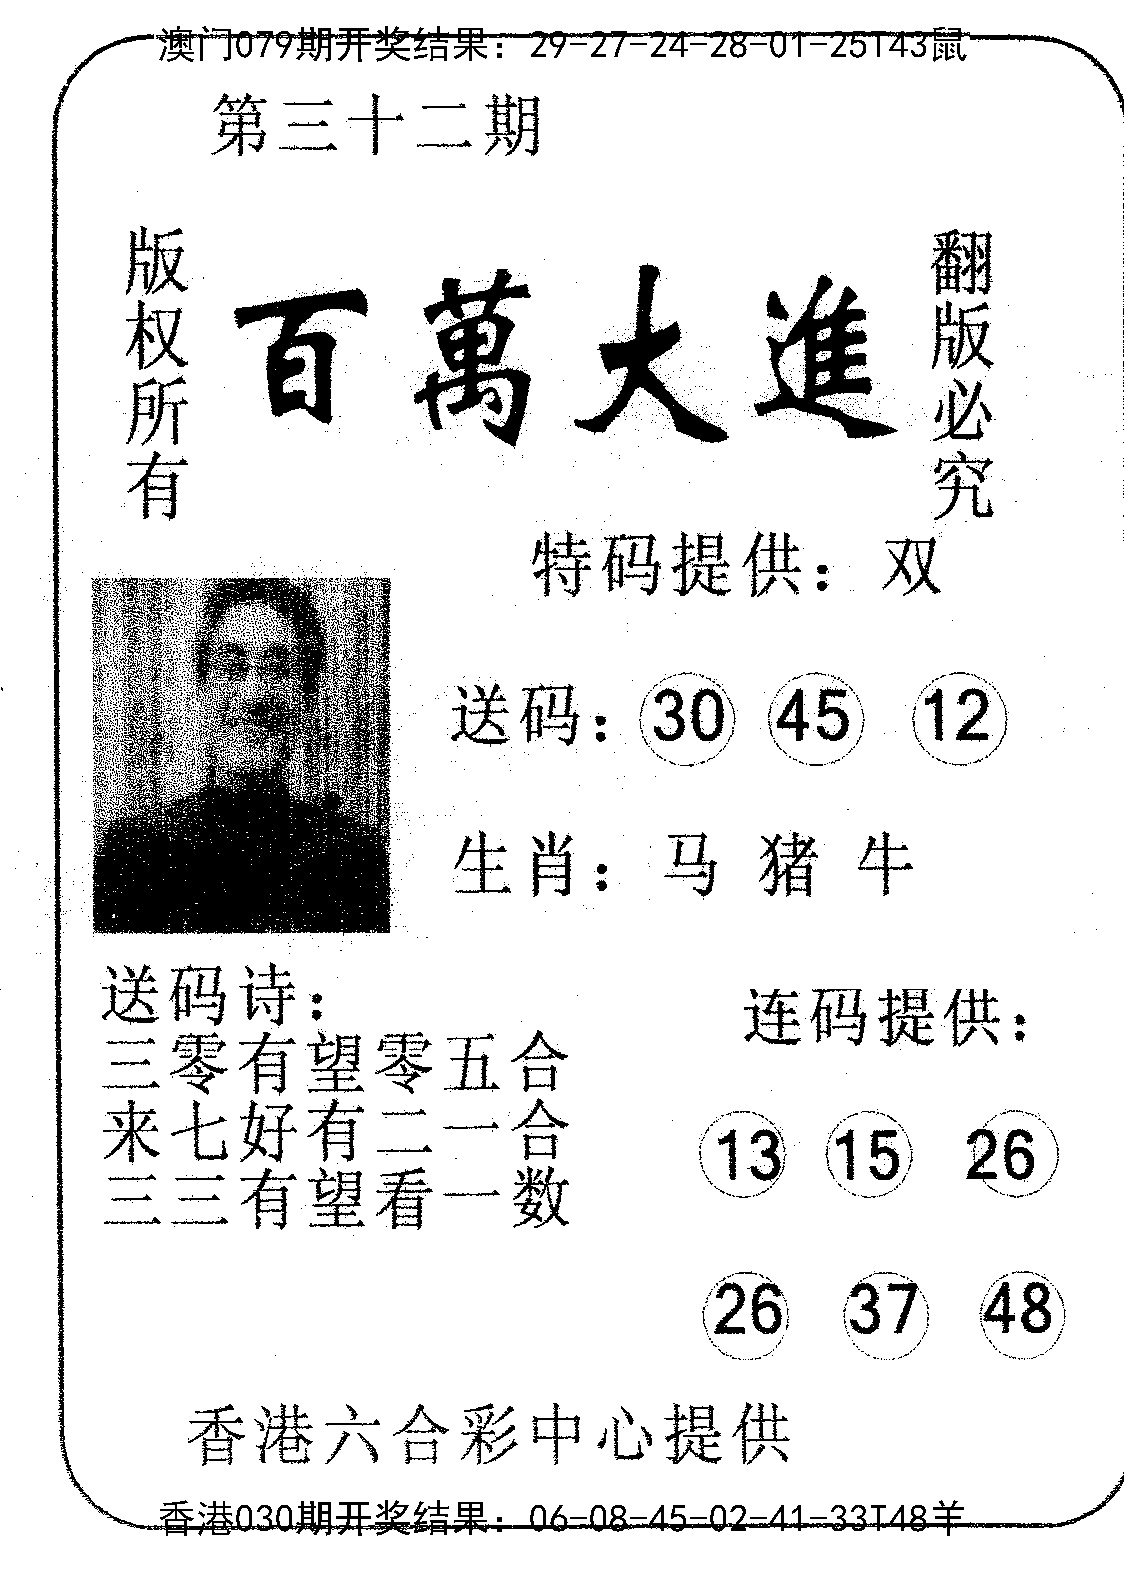 澳门079期开奖结果：29-27-24-28-01-25T43鼠
第三十二期
版权所有
百萬大進
翻版必究
特码提供：双
送码：30 45 12
生肖：马 猪 牛
送码诗：
三零有望零五合
来七好有二一合
三三有望看一数
连码提供：
13 15 26
26 37 48
香港六合彩中心提供
香港030期开奖结果：06-08-45-02-41-33T48羊